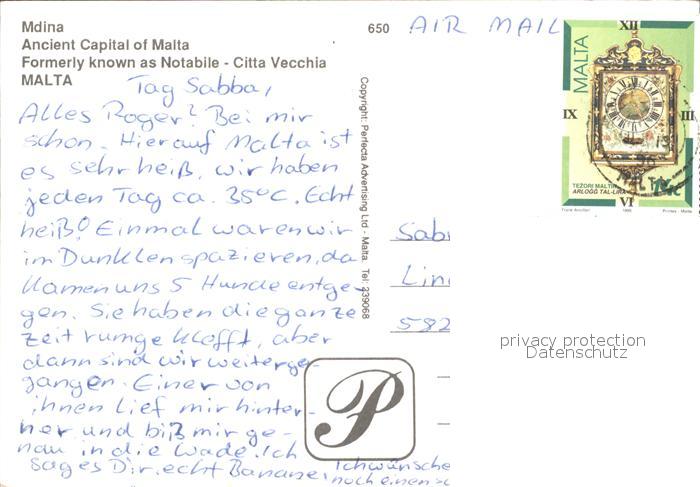 Mdina
Ancient Capital of Malta
Formerly known as Notabile - Citta Vecchia
MALTA
650
AIR MAIL
Tag Sabba,
Alles Roger? Bei mir
schon. Hier auf Malta ist
es sehr heiß, wir haben
jeden Tag ca. 35°C. Echt
heiß! Einmal waren wir
im Dunklen spazieren, da
kamen uns 5 Hunde entge-
gen. Sie haben die ganze
Zeit rumgekläfft, aber
dann sind wir weiterge-
gangen. Einer von
ihnen lief mir hinter-
her und biß mir ge-
nau in die Wade. Ich
sag es Dir, echt Banane.
Ich wünsche
noch einen sc
Copyright: Perfecta Advertising Ltd - Malta. Tel: 239068
MALTA
XII
III
VI
IX
TEŻORI MALTIN
ARLOĠĠ TAL-LIRA
Sab
Lin
582
P
privacy protection
Datenschutz